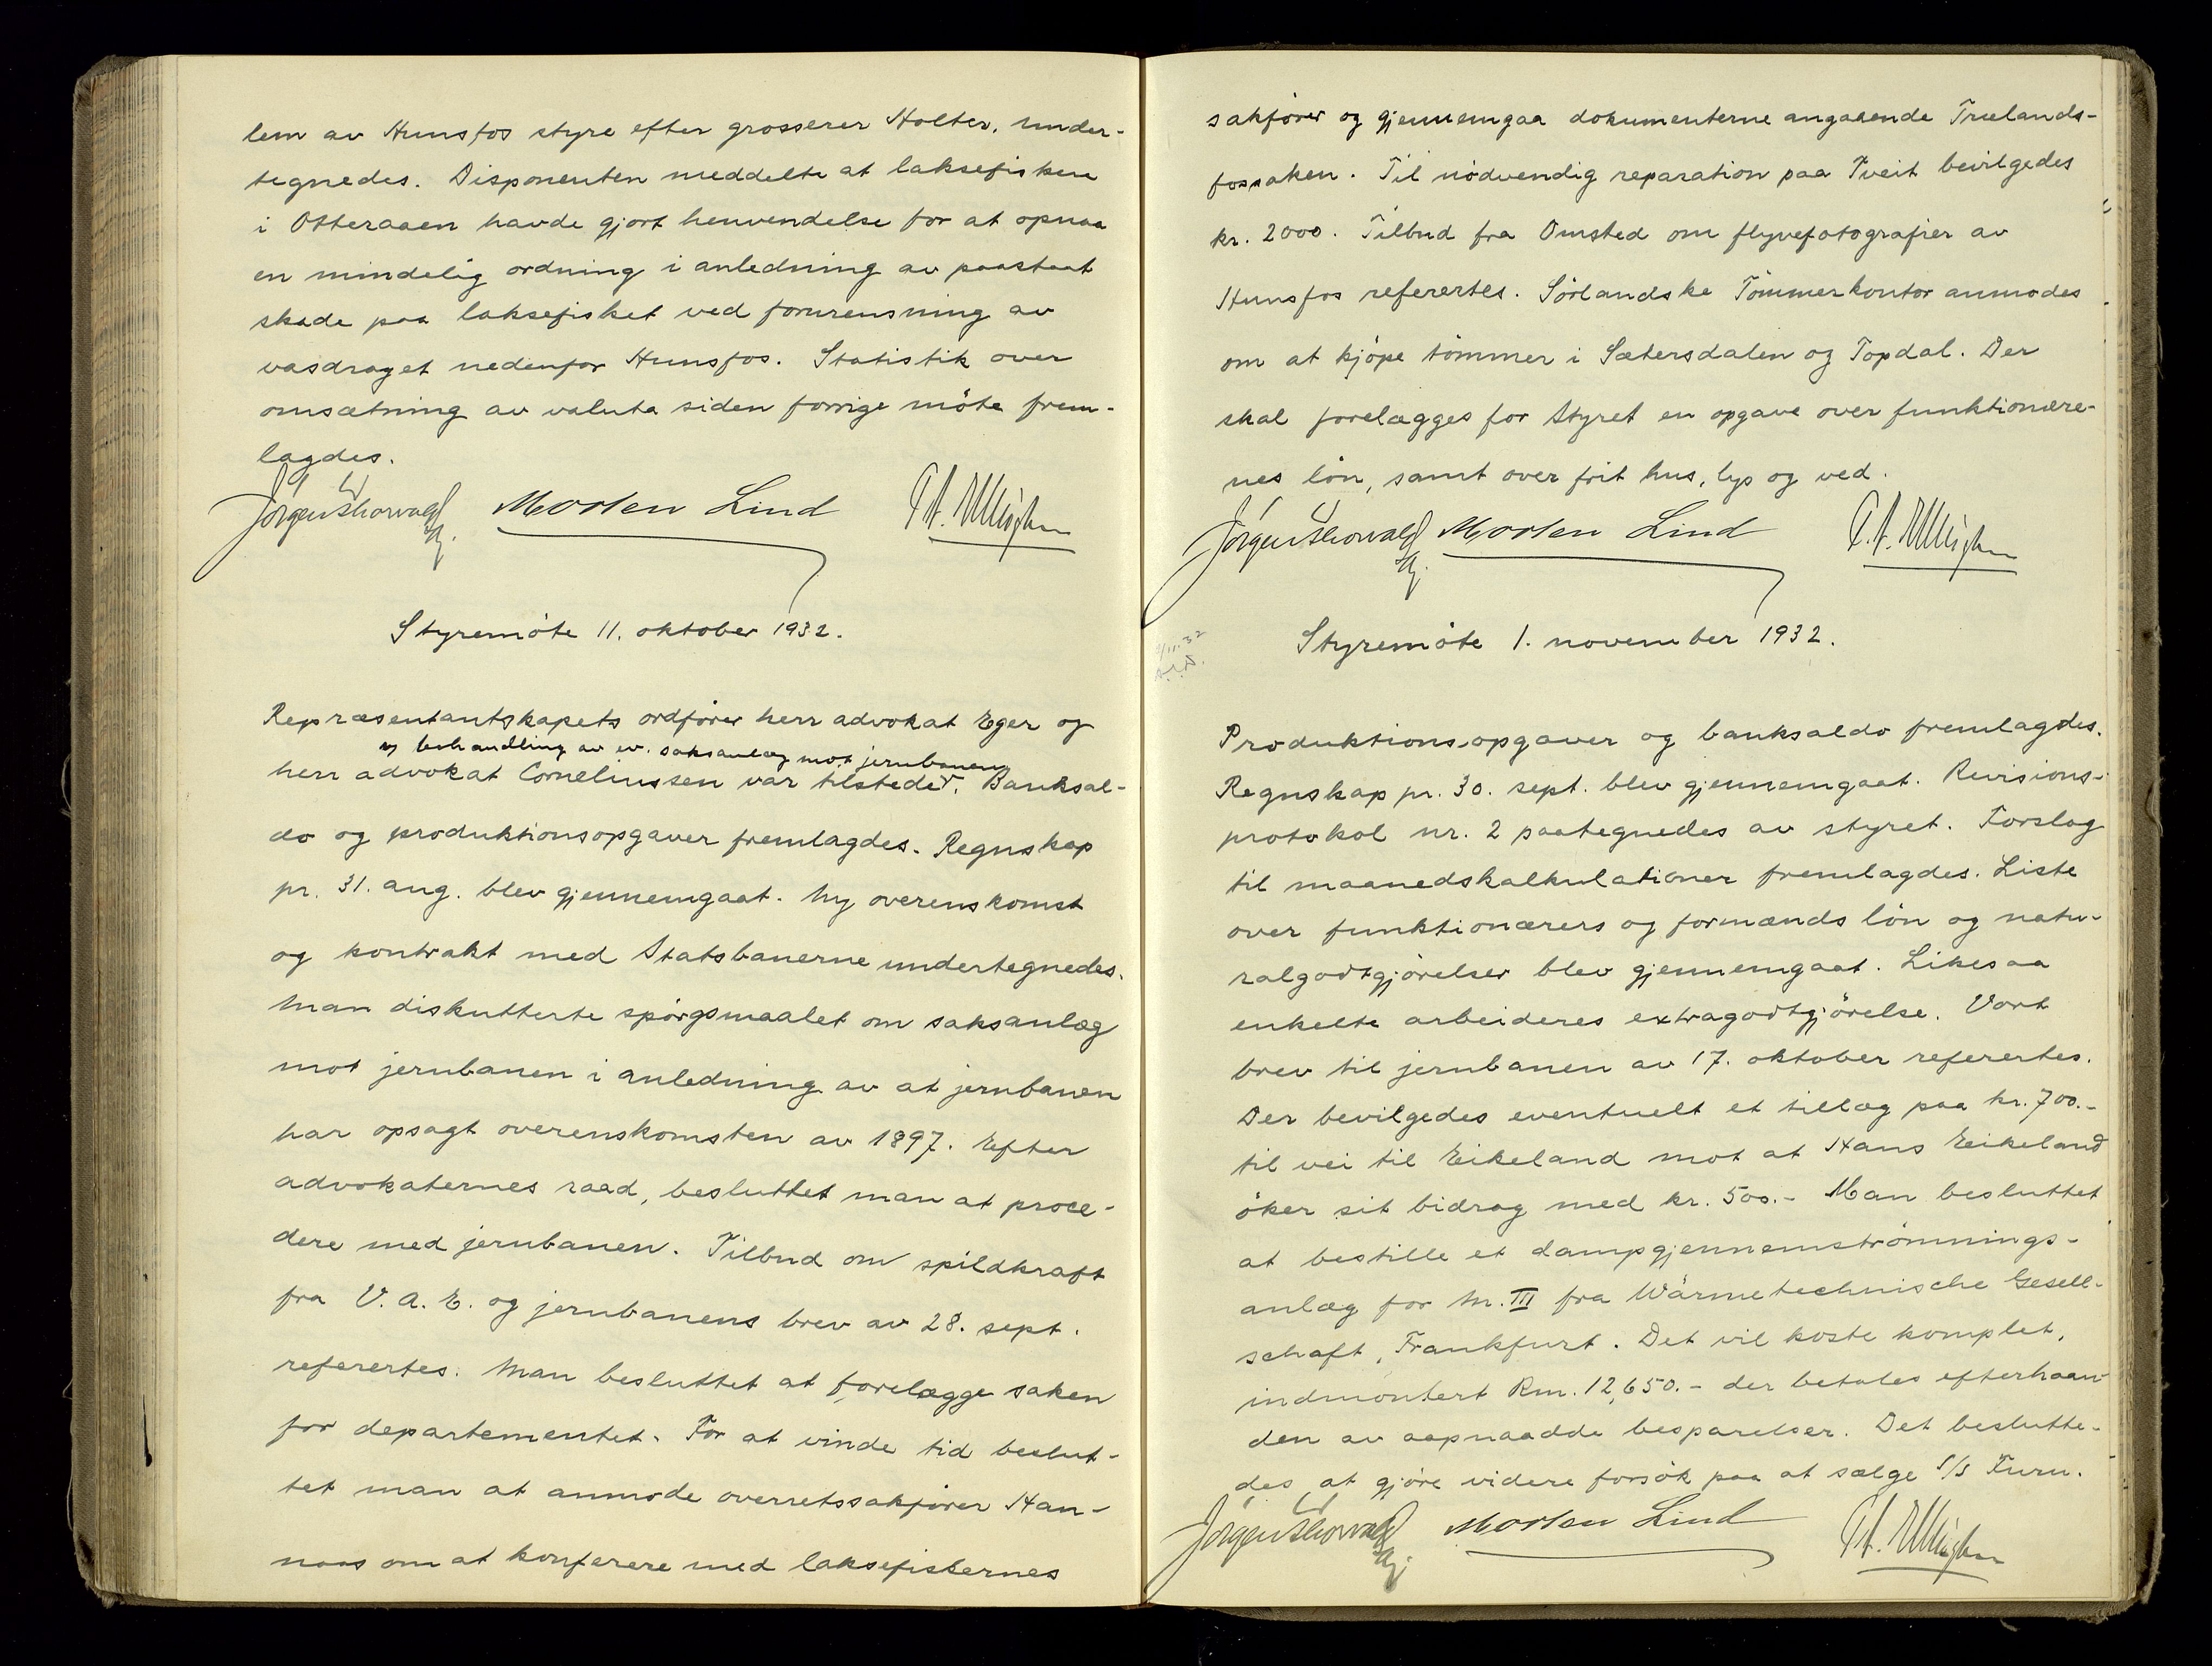 lem av Hunsfos styre efter grosserer Holter, under-
tegnedes. Disponenten meddelte at laksefiskere
i Otteraaen havde gjort henvendelse for at opnaa
en mindelig ordning i anledning av paastaat
skade paa laksefisket ved forurensning av
vasdraget nedenfor Hunsfos. Statistik over
omsætning av valuta siden forrige möte frem-
lagdes.
Jörgen Morten Lind
Styremöte 11. oktober 1932.
Repræsentantskapets ordförer herr advokat Eger og
ved behandling av ev. saksanlæg mot jernbanen
herr advokat Corneliussen var tilstede. Banksal-
do og produktionsopgaver fremlagdes. Regnskap
pr. 31. aug. blev gjennemgaat. Ny overenskomst
og kontrakt med Statsbanerne undertegnedes.
Man diskutterte spörgsmaalet om saksanlæg
mot jernbanen i anledning av at jernbanen
har opsagt overenskomsten av 1897. Efter
advokaternes raad, besluttet man at proce-
dere med jernbanen. Tilbud om spildkraft
fra V. A. E. og jernbanens brev av 28. sept.
referertes. Man besluttet at forelægge saken
for departementet. For at vinde tid beslut-
tet man at anmode overretssakförer Han-
naas om at konferere med laksefiskernes
sakförer og gjennemgaa dokumenterne angaaende Truelands-
fossaken. Til nödvendig reparation paa Tveit bevilgedes
kr. 2000. Tilbud fra Omsted om flyvefotografier av
Hunsfos referertes. Sörlandske Tömmerkontor anmodes
om at kjöpe tömmer i Sætersdalen og Topdal. Der
skal forelægges for Styret en opgave over funktionære-
nes lön, samt over frit hus, lys og ved.
Jörgen Morten Lind
Styremöte 1. november 1932.
Produktionsopgaver og banksaldo fremlagdes.
Regnskap pr. 30. sept. blev gjennemgaat. Revisions-
protokol nr. 2 paategnedes av styret. Forslag
til maanedskalkulationer fremlagdes. Liste
over funktionærers og formænds lön og natu-
ralgodtgjörelser blev gjennemgaat. Likesaa
enkelte arbeideres extragodtgjörelse. Vort
brev til jernbanen av 17. oktober referertes.
Der bevilgedes eventuelt et tillæg paa kr. 700.-
til vei til Eikeland mot at Hans Eikeland
öker sit bidrag med kr. 500.- Man besluttet
at bestille et dampgjennemströmnings-
anlæg for M. III fra Wärmetechnische Gesell-
schaft, Frankfurt. Det vil koste komplet,
indmontert Rm. 12,650.- der betales efterhaan-
den av aapnaadde besparelser. Det beslutte-
des at gjöre videre forsök paa at sælge S/S Furu.
Jörgen Morten Lind